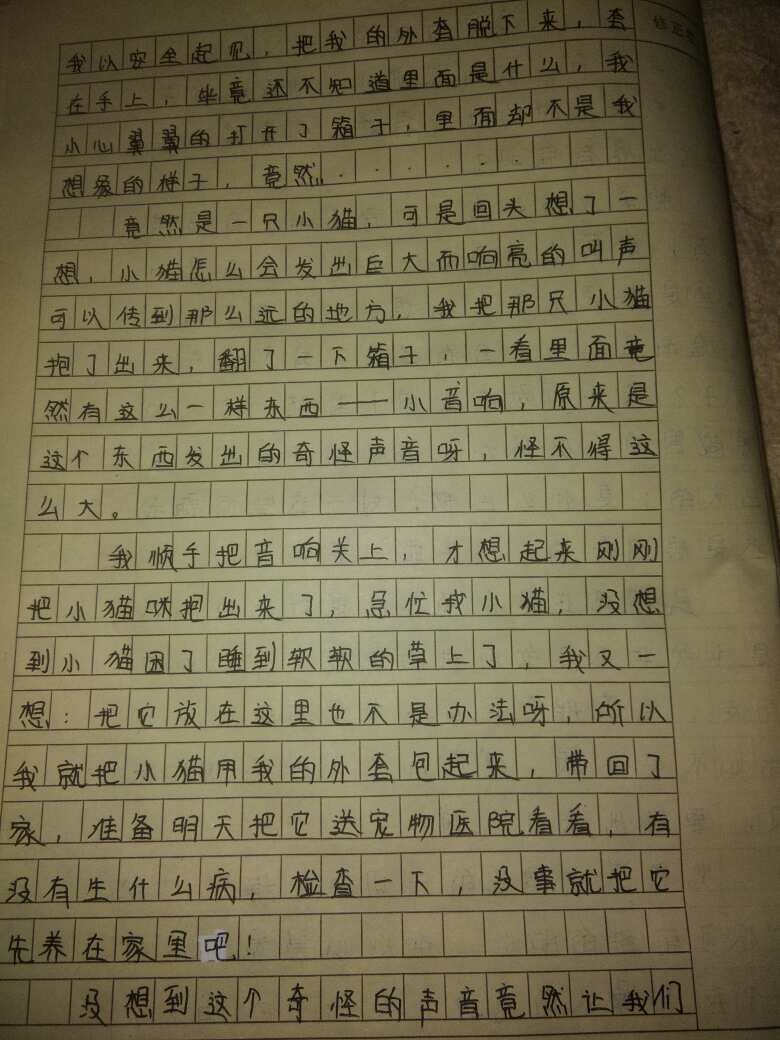 我以安全起见，把我的外套脱下来，套
在手上，毕竟还不知道里面是什么，我
小心翼翼的打开了箱子，里面却不是我
想象的样子，竟然......
竟然是一只小猫，可是回头想了一
想，小猫怎么会发出巨大而响亮的叫声
可以传到那么远的地方，我把那只小猫
抱了出来，翻了一下箱子，一看里面竟
然有这么一样东西——小音响，原来是
这个东西发出的奇怪声音呀，怪不得这
么大。
我顺手把音响关上，才想起来刚刚
把小猫咪抱出来了，急忙找小猫，没想
到小猫困了睡到软软的草上了，我又一
想：把它放在这里也不是办法呀，所以
我就把小猫用我的外套包起来，带回了
家，准备明天把它送宠物医院看看，有
没有生什么病，检查一下，没事就把它
先养在家里吧！
没想到这个奇怪的声音竟然让我们